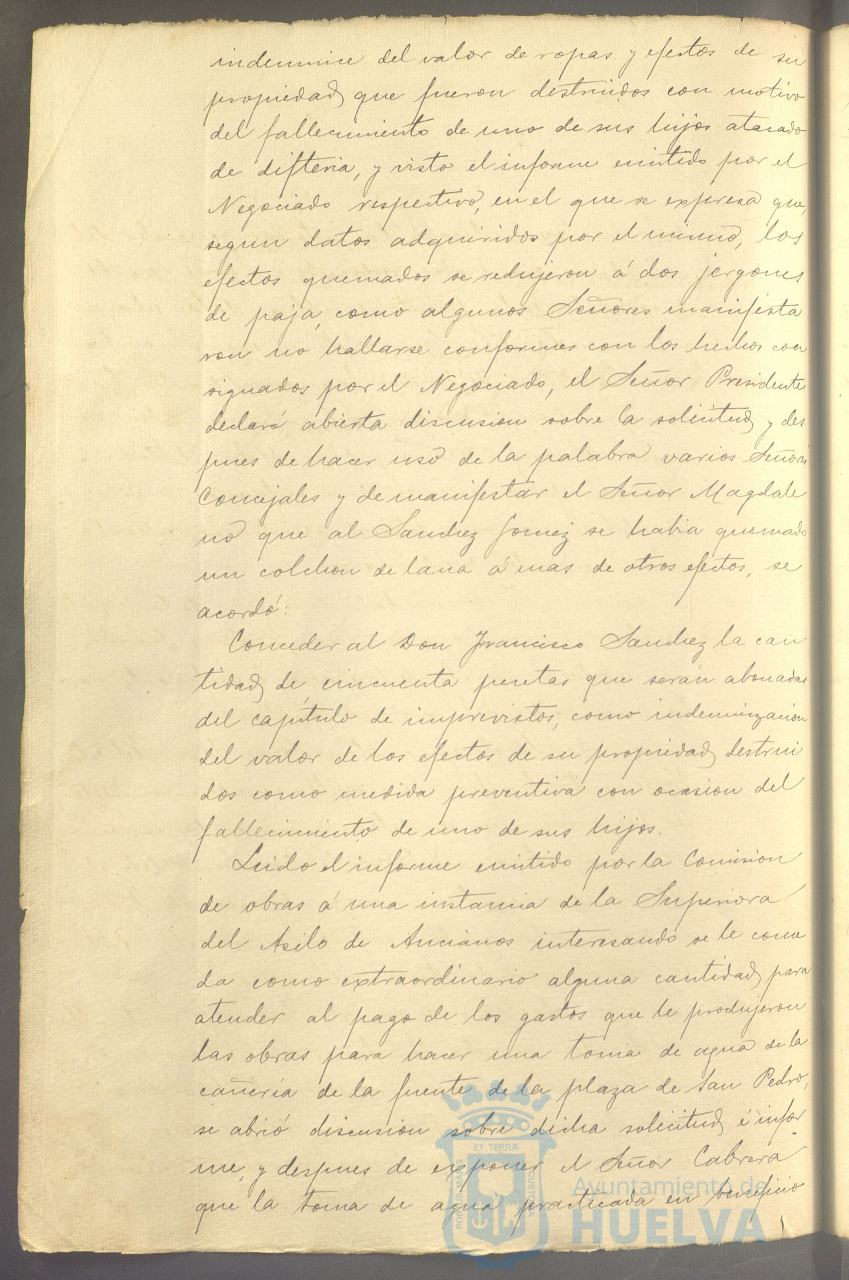 indemnice del valor de ropas y efectos de su
propiedad que fueron destruidos con motivo
del fallecimiento de uno de sus hijos atacado
de difteria, y visto el informe emitido por el
Negociado respectivo, en el que se expresa que,
segun datos adquiridos por el mismo, los
efectos quemados se redujeron á dos jergones
de paja, como algunos Señores manifesta
ron no hallarse conformes con los hechos con
signados por el Negociado, el Señor Presidente
declaró abierta discusion sobre la solicitud y des
pues de hacer uso de la palabra varios Señores
Concejales y de manifestar el Señor Magdale
no que al Sanchez Gomez se habia quemado
un colchon de lana á mas de otros efectos, se
acordó:
Conceder al Don Francisco Sanchez la can
tidad de cincuenta pesetas que serán abonadas
del capítulo de imprevistos, como indemnizacion
del valor de los efectos de su propiedad destrui
dos como medida preventiva con ocasion del
fallecimiento de uno de sus hijos.
Leido el informe emitido por la Comision
de obras á una instancia de la Superiora
del Asilo de Ancianos interesando se le conce
da como extraordinario alguna cantidad para
atender al pago de los gastos que le produjeron
las obras para hacer una toma de agua de la
cañería de la fuente de la plaza de San Pedro,
se abrió discusion sobre dicha solicitud é infor
me, y despues de exponer el Señor Cabrera
que la toma de agua practicada en beneficio
Ayuntamiento de
HUELVA